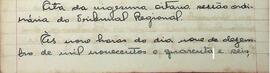 Ata da vigesima oitava sessão ordi-
nária do Tribunal Regional.
Às nove horas do dia nove de dezem-
bro de mil novecentos e quarenta e seis,